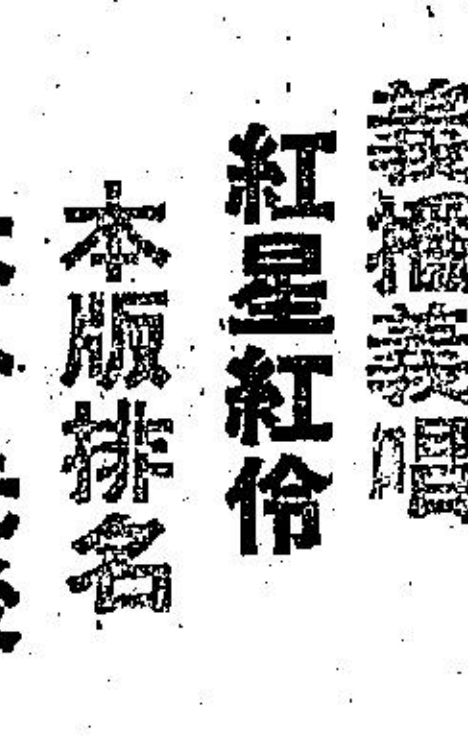 義櫃義唱
紅星紅伶
本版排名